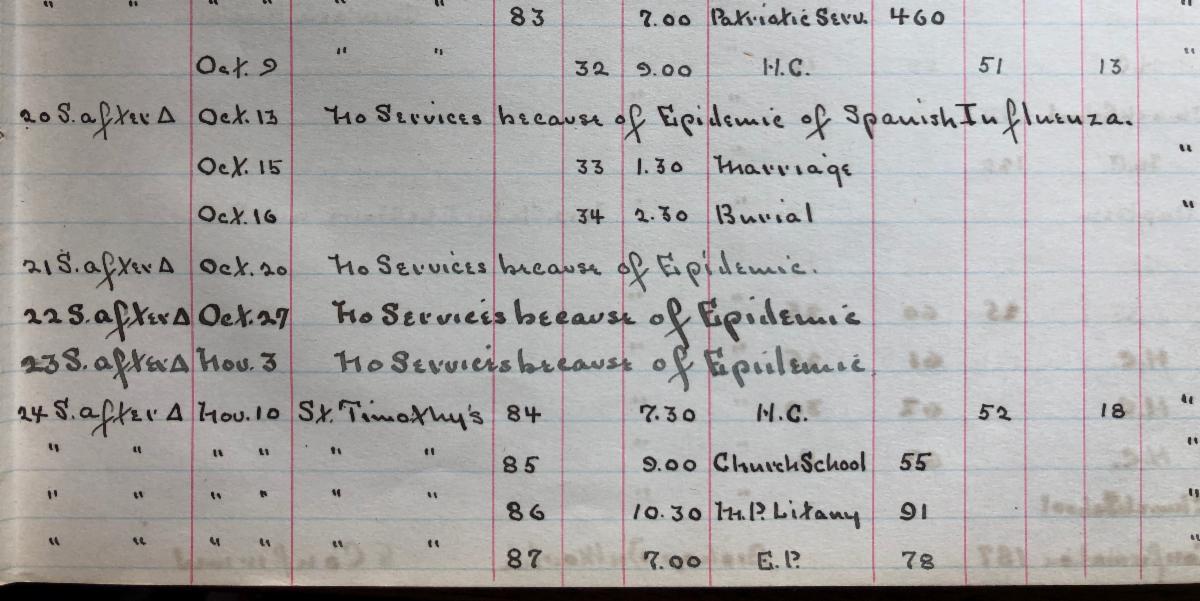 " " " " " " 83 7.00 Patriotic Serv. 460 "
Oct. 9 " " 32 9.00 H.C. 51 13 "
20 S. after Δ Oct. 13 No Services because of Epidemic of Spanish Influenza.
Oct. 15 33 1.30 Marriage "
Oct. 16 34 2.30 Burial "
21 S. after Δ Oct. 20 No Services because of Epidemic.
22 S. after Δ Oct. 27 No Services because of Epidemic
23 S. after Δ Nov. 3 No Services because of Epidemic.
24 S. after Δ Nov. 10 St. Timothy's 84 7.30 H.C. 52 18 "
" " " " " " 85 9.00 Church School 55 "
" " " " " " 86 10.30 M.P. Litany 91 "
" " " " " " 87 7.00 E.P. 78 "